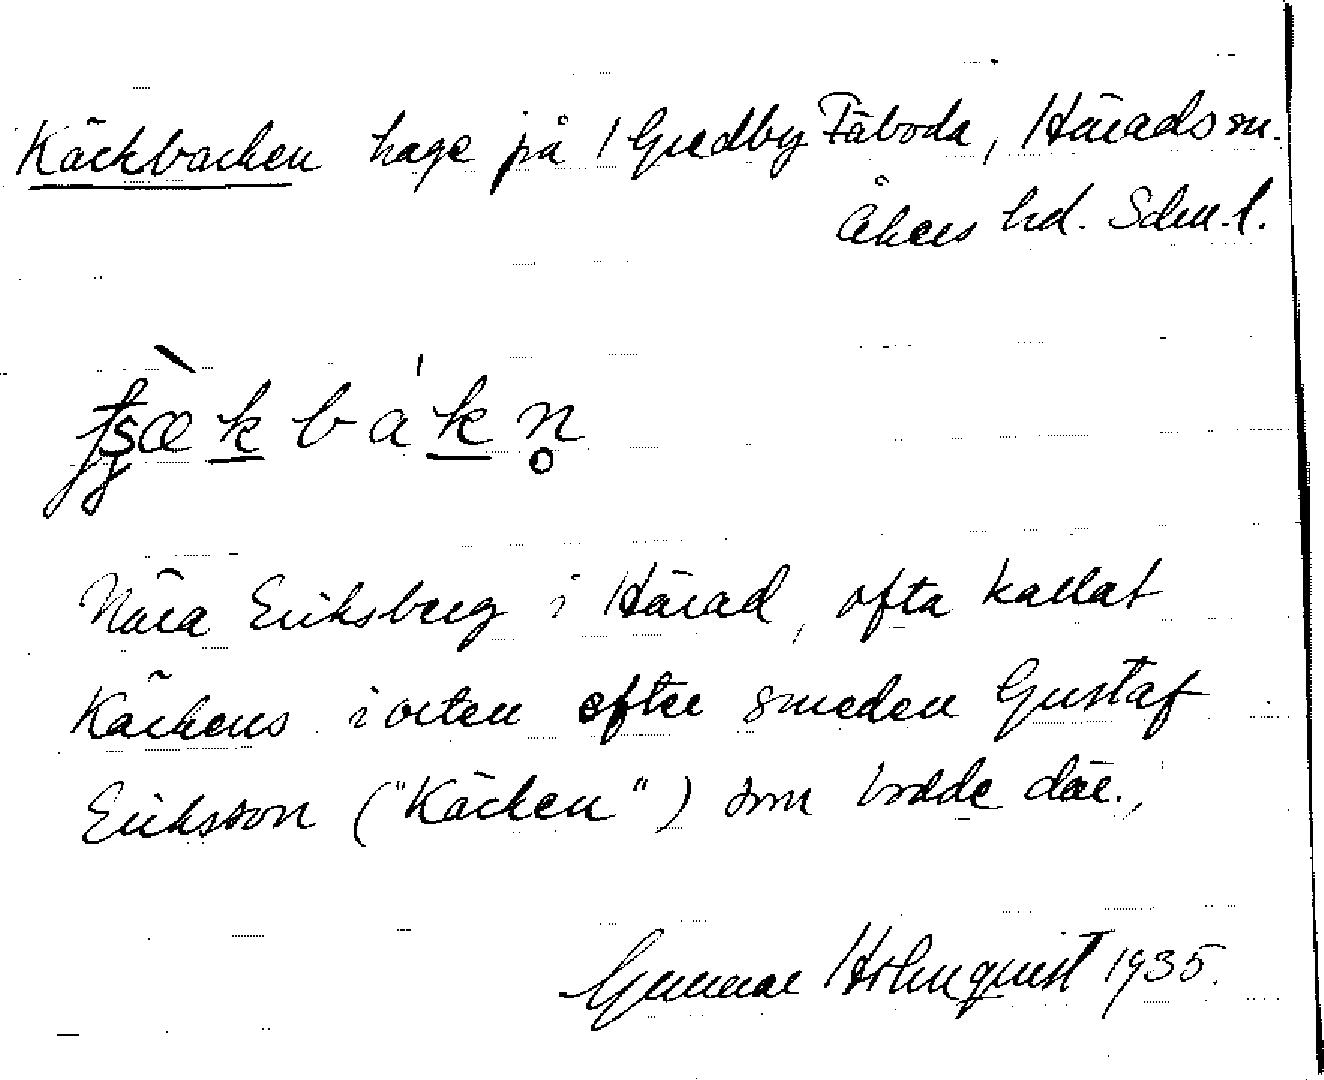 Käckbacken hage på /Gredby Fäboda, Härads sn.
Åkers hd. Sdm.l.
kbákn̥
Nära Eriksberg i Härad, ofta kallat
Käckens i orten efter smeden Gustaf
Eriksson ("Käcken") som bodde där.
Gunnar Holmquist 1935.